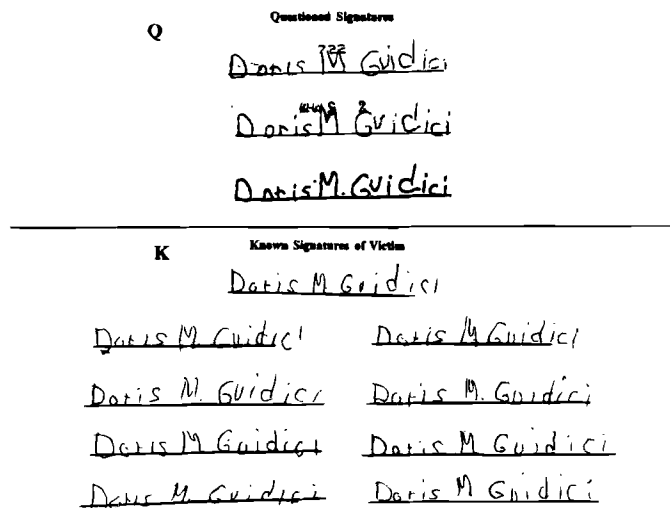 Questioned Signatures
Q
Doris M Guidici
Doris M Guidici
Doris M. Guidici
K
Known Signatures of Victim
Doris M Guidici
Doris M. Guidici Doris M Guidici
Doris M. Guidici Doris M. Guidici
Doris M Guidici Doris M Guidici
Doris M. Guidici Doris M Guidici